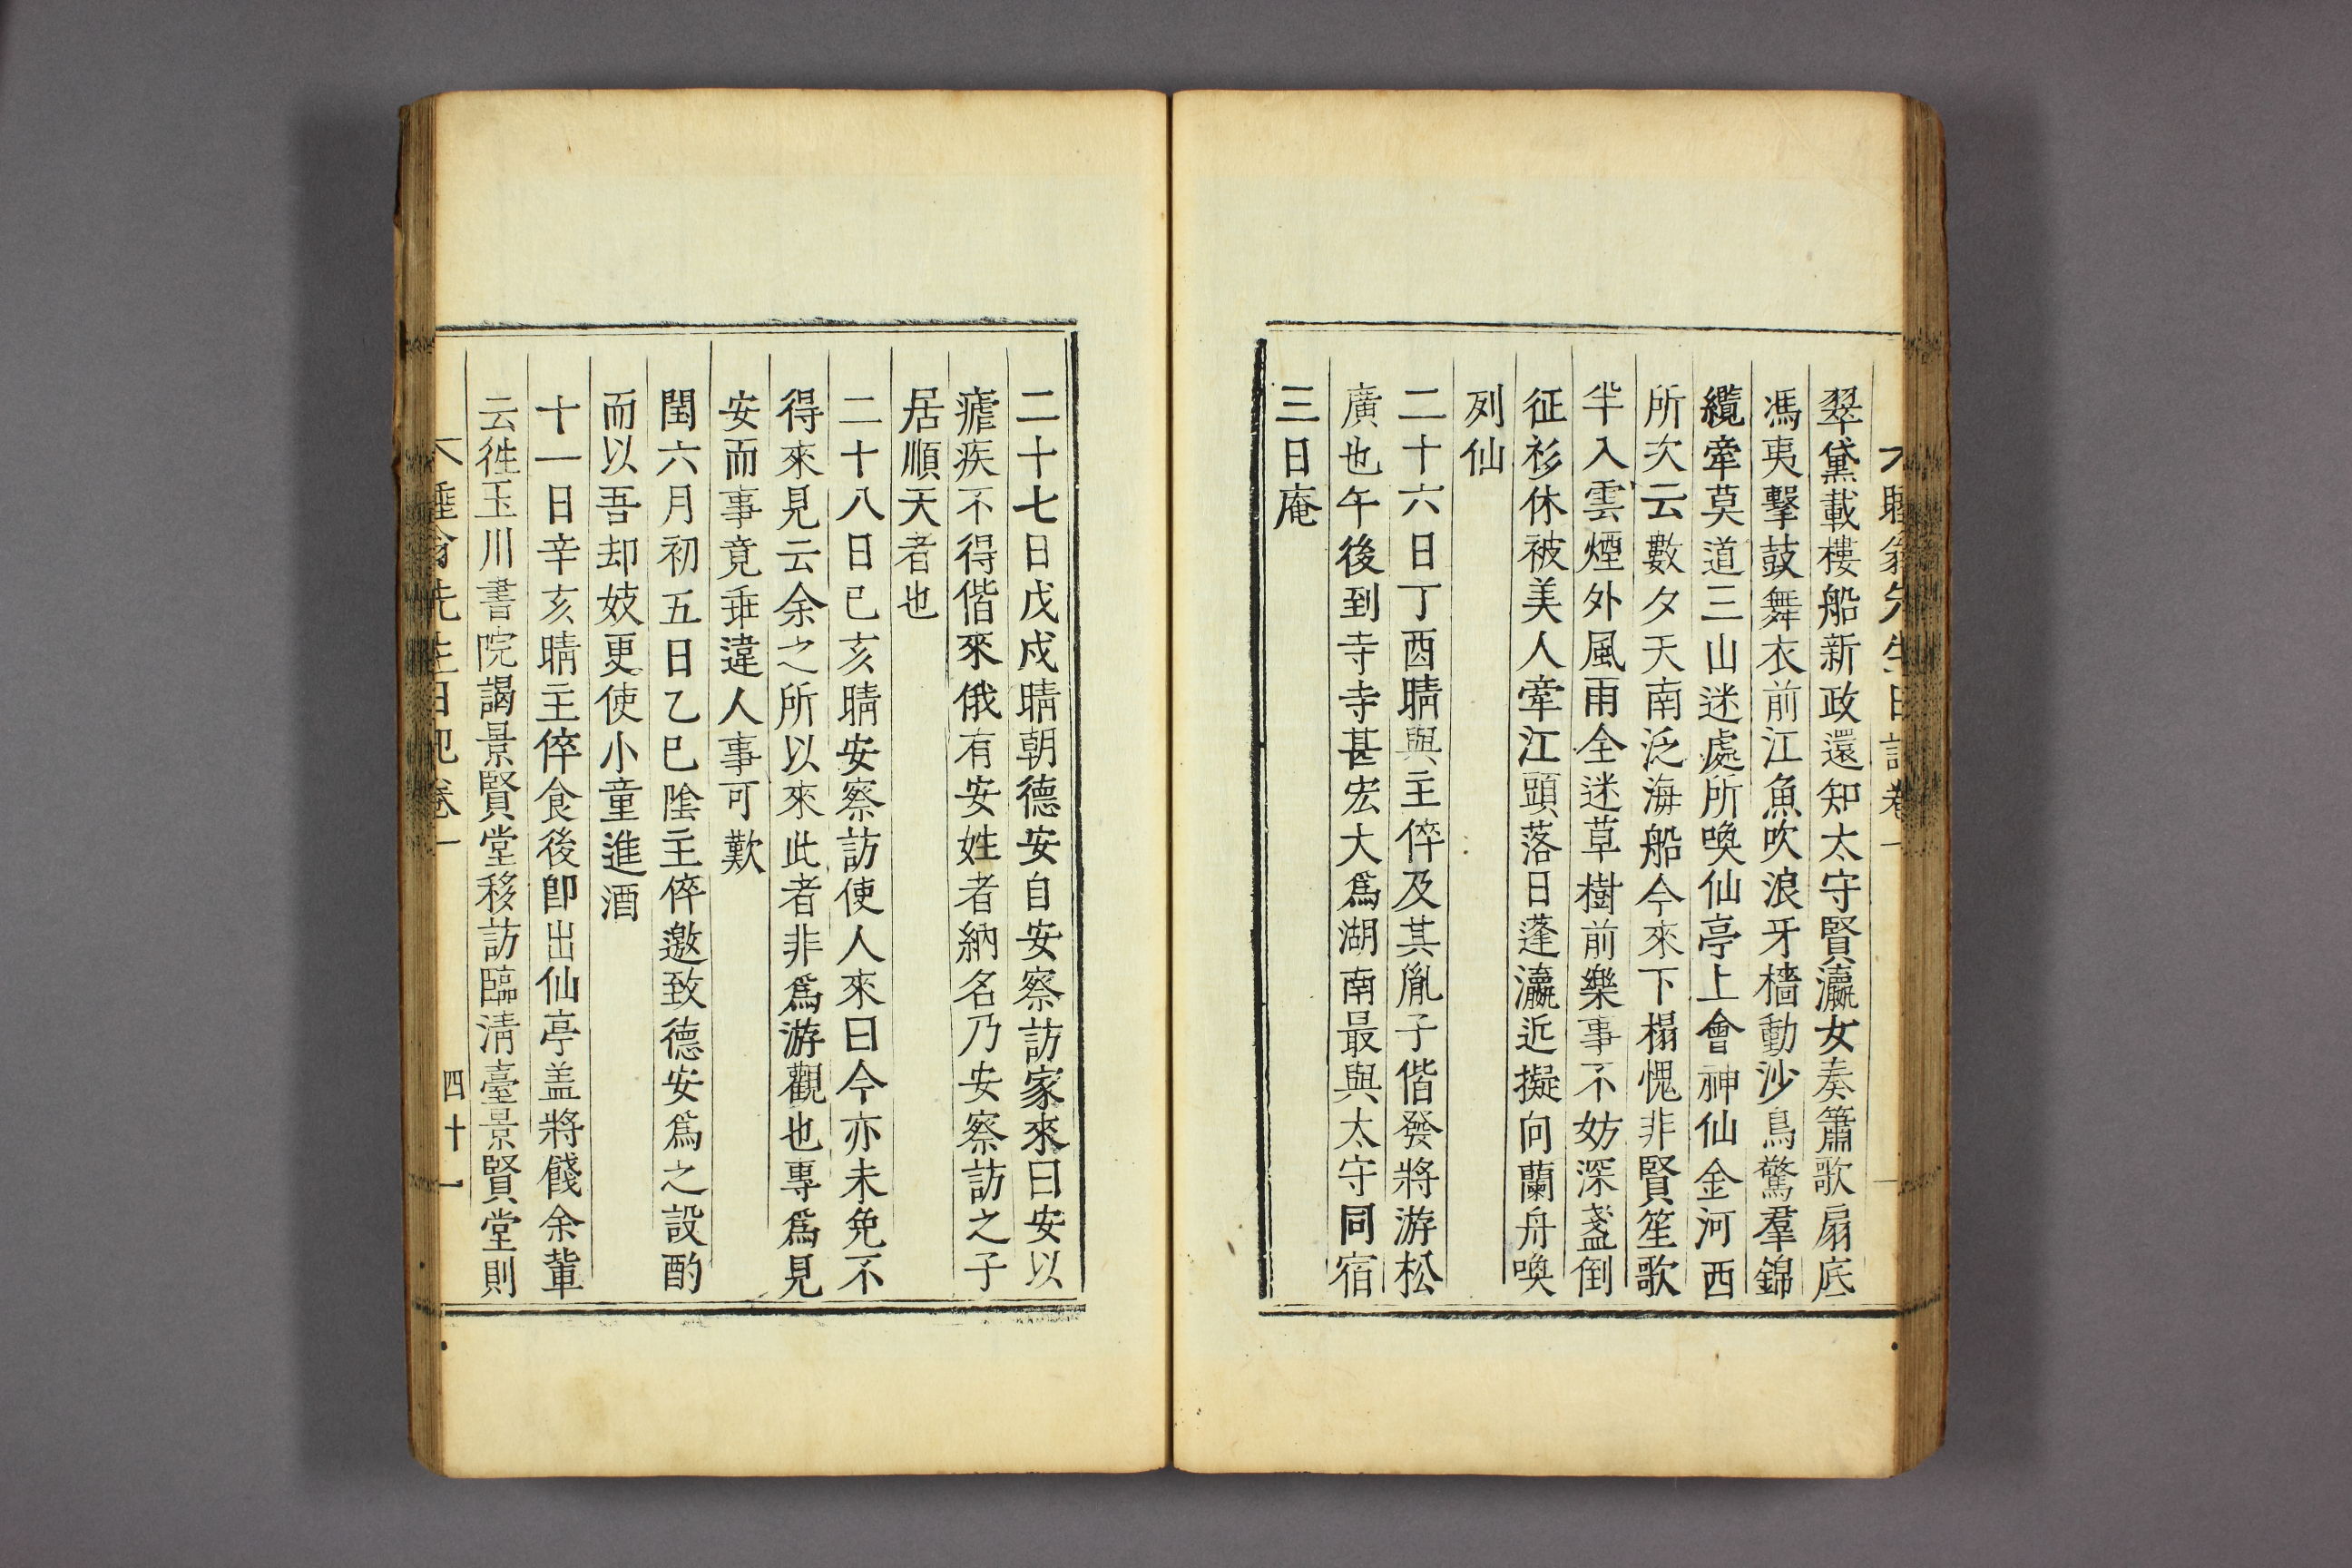 翠黛載樓船新政還知太守賢瀛女奏簫歌扇底
馮夷擊鼓舞衣前江魚吹浪牙檣動沙鳥驚羣錦
纜牽莫道三山迷處所喚仙亭上會神仙金河西
所次云數夕天南泛海船今來下榻愧非賢笙歌
半入雲煙外風雨全迷草樹前樂事不妨深盞倒
征衫休被美人牽江頭落日蓬瀛近擬向蘭舟喚
列仙
二十六日丁酉晴與主倅及其胤子偕發將游松
廣也午後到寺寺甚宏大爲湖南最與太守同宿
三日庵
二十七日戊戌晴朝德安自安察訪家來曰安以
瘧疾不得偕來俄有安姓者納名乃安察訪之子
居順天者也
二十八日己亥晴安察訪使人來曰今亦未免不
得來見云余之所以來此者非爲游觀也專爲見
安而事竟乖違人事可歎
閏六月初五日乙巳陰主倅邀致德安爲之設酌
而以吾却妓更使小童進酒
十一日辛亥晴主倅食後卽出仙亭盖將餞余輩
云徃玉川書院謁景賢堂移訪臨淸臺景賢堂則
先生日記卷一
四十一